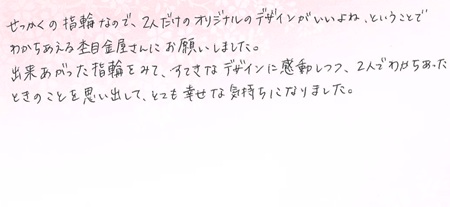 せっかくの指輪なので、2人だけのオリジナルのデザインがいいよね、ということで
わかちあえる杢目金屋さんにお願いしました。
出来あがった指輪をみて、すてきなデザインに感動しつつ、2人でわかちあった
ときのことを思い出して、とても幸せな気持ちになりました。